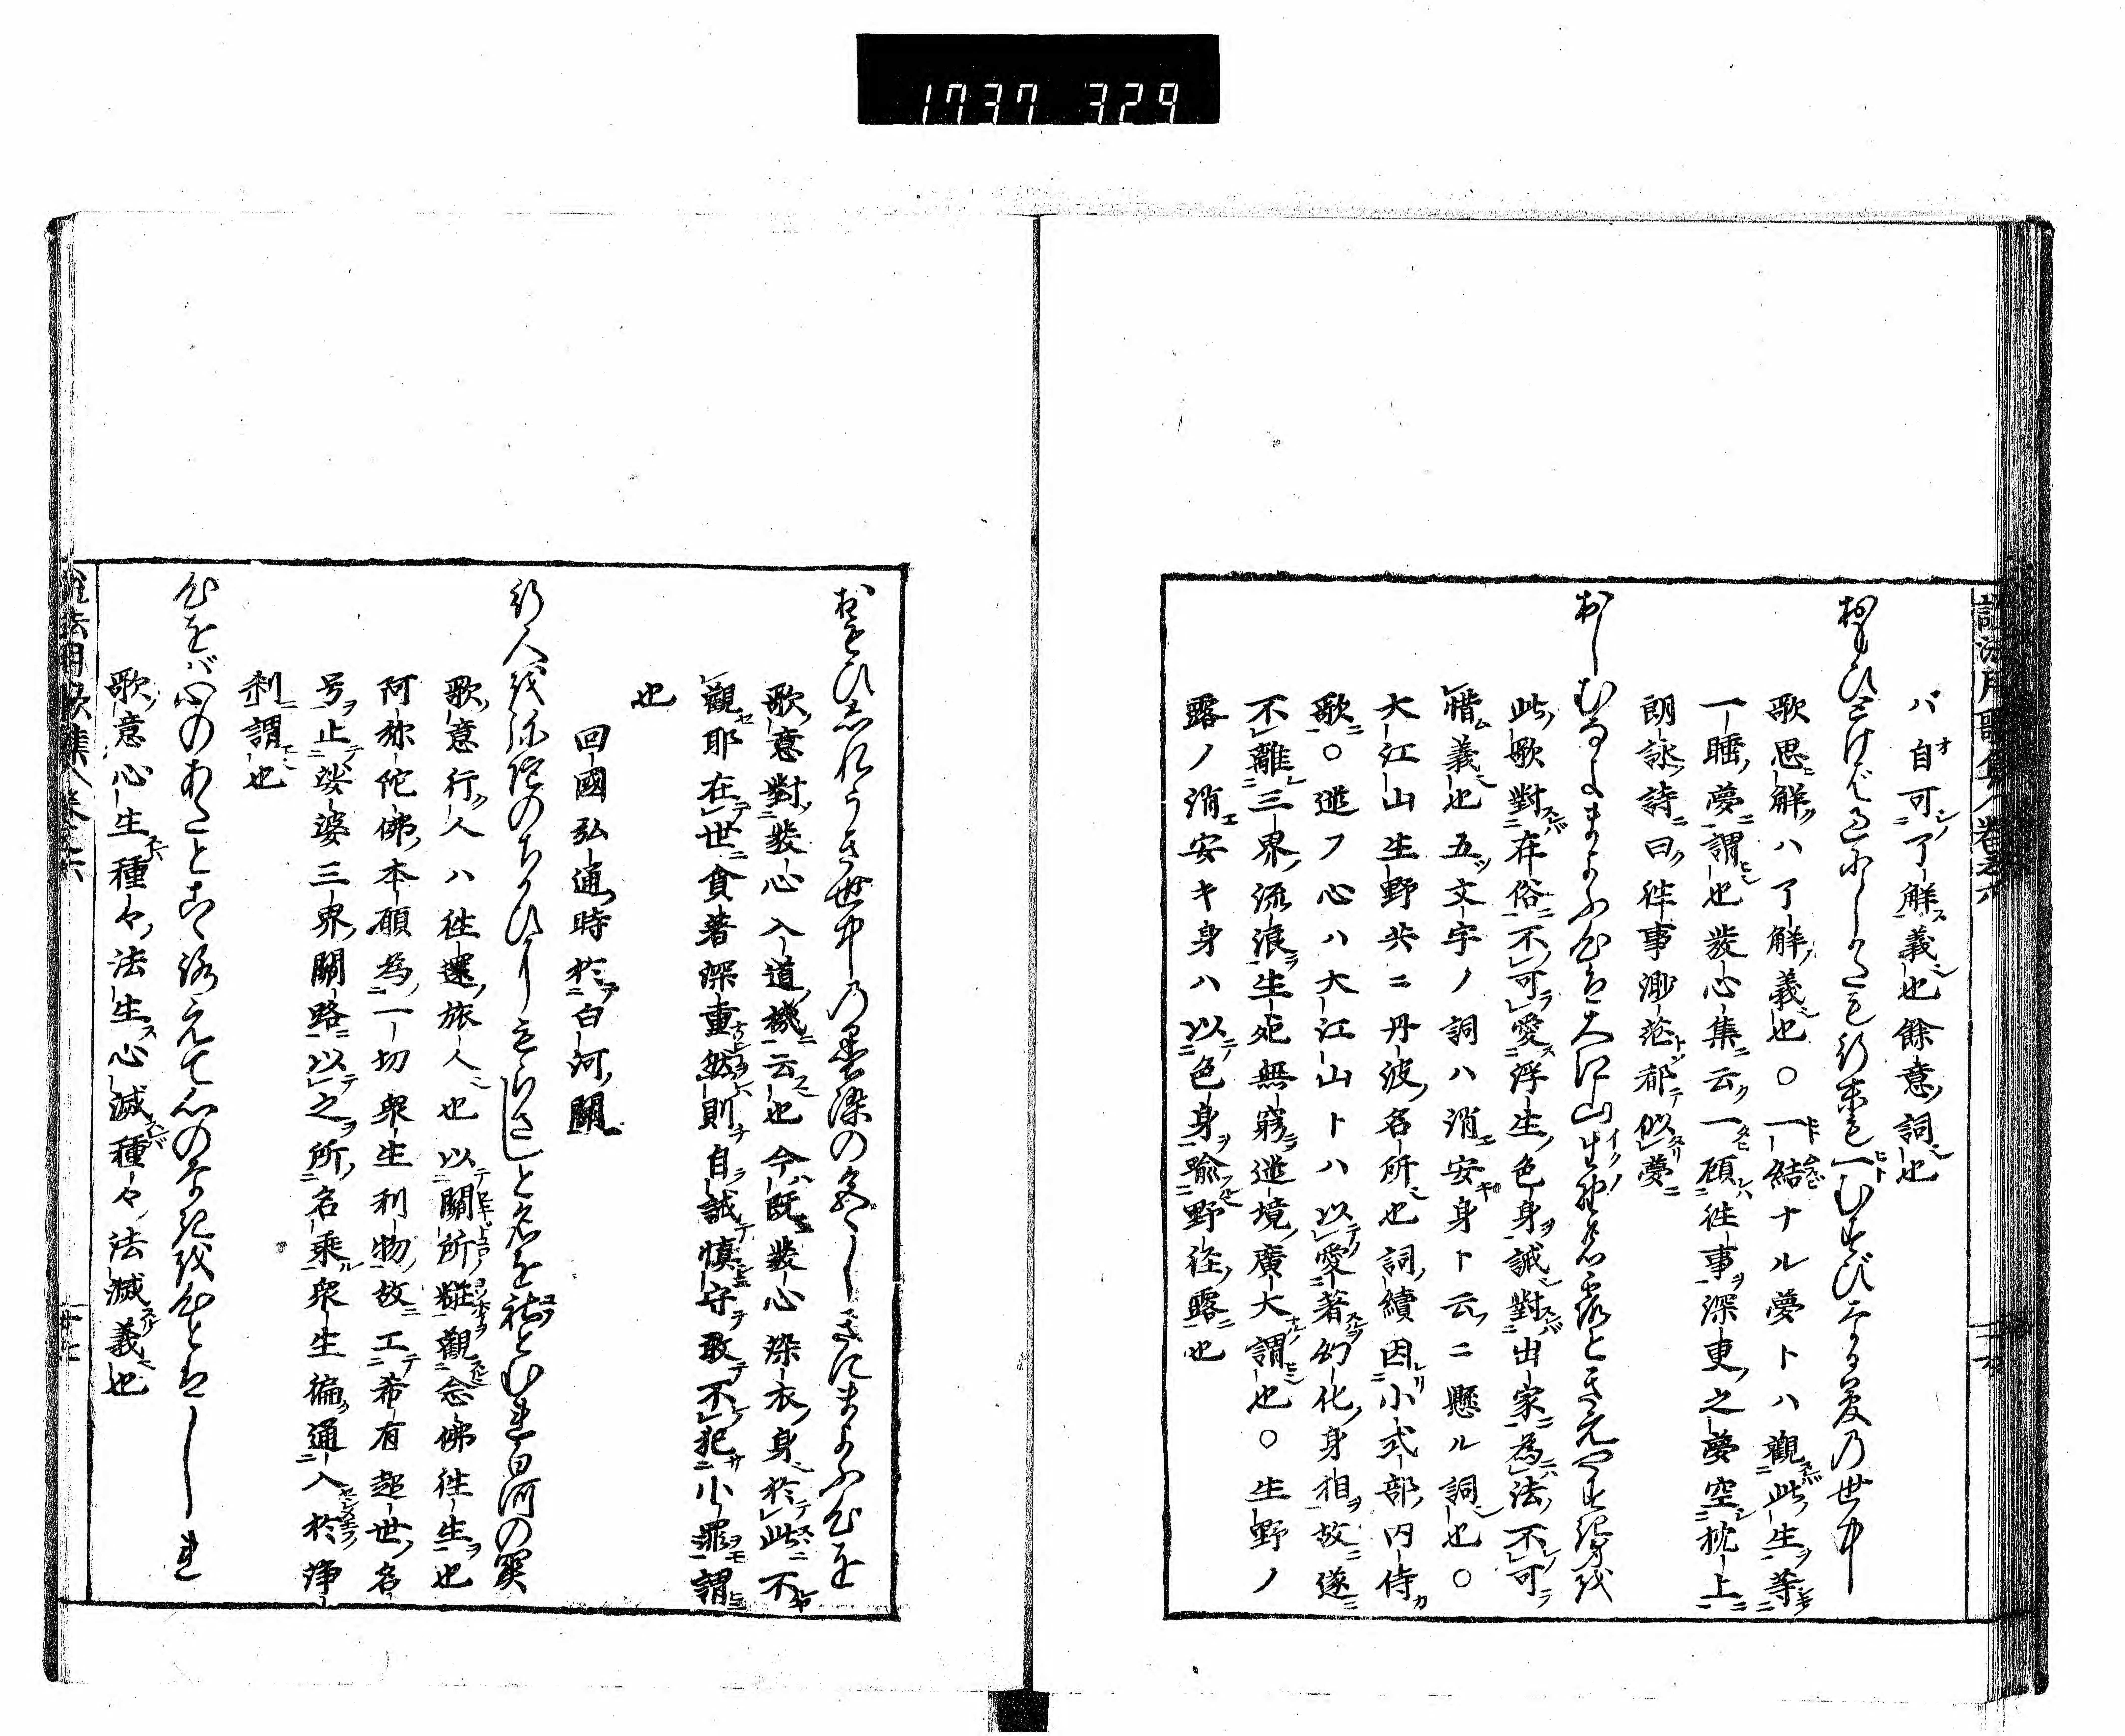 1737 329
バ自可了解義也餘意詞也
おもひとけば過にしかたも行末も一むすびなる夢乃世中
歌思解ハ了解義也○一結ナル夢トハ觀此生等
一睡夢謂也發心集云一顧往事深更之夢空枕上
朗詠詩曰往事渺茫都似夢
おしむなよまよふ心は大江山生野の露ときえやすき身を
此歌對在俗不可愛浮生色身誡對出家為法不可
惜義也五文字ノ詞ハ消安身ト云ニ懸ル詞也○
大江山生野共ニ丹波名所也詞續因小式部内侍
歌○迷フ心ハ大江山トハ以愛著幻化身相故遂
不離三界流浪生死無窮迷境廣大謂也○生野ノ
露ノ消安キ身ハ以色身喩野徑露也
おもひしれうき世中乃墨染の
歌意對發心入道機云也今既發心染衣身於此不
觀耶在世貪著深重然則自誡慎守敢不犯小罪謂
也
回國弘通時於白河關
行人を弥陀のちかひにもらさじと名を社とむれ白河の関
歌意行人ハ往還旅人也以關所擬觀念佛往生也
阿弥陀佛本願為一切衆生利物故工希有超世名
号止娑婆三界關路以之所名乗衆生徧通入於淨
刹謂也
心をバ心のあだとこゝろえて心のなきを心とはしれ
歌意心生種々法生心滅種々法滅義也